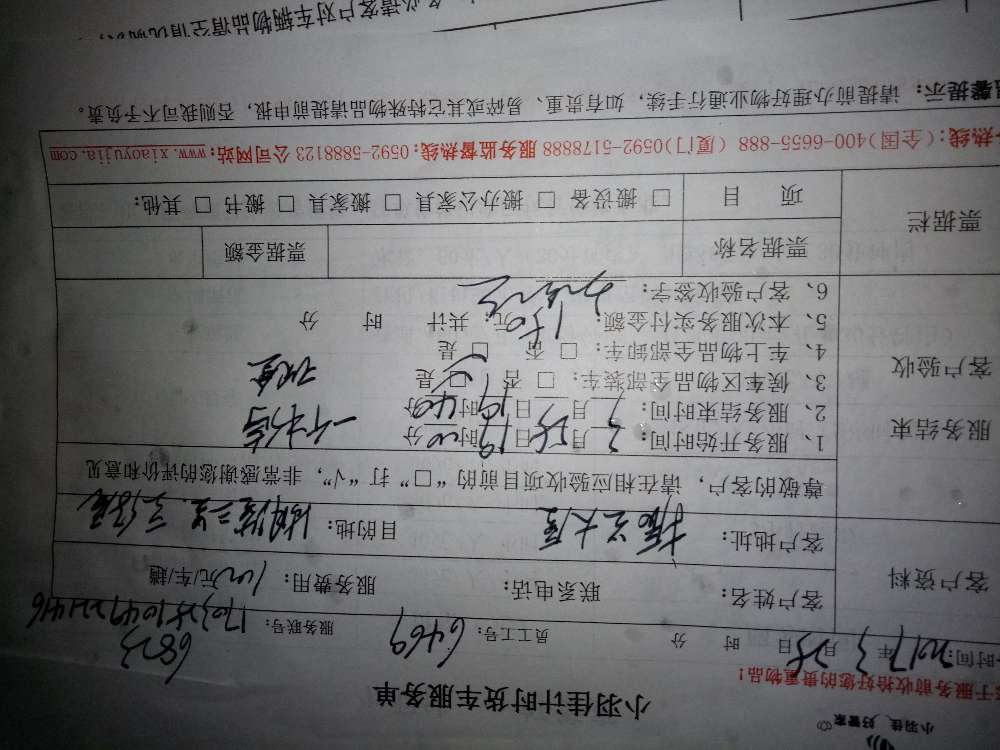 小羽佳 好管家
小羽佳计时货车服务单
于服务前收拾好您的贵重物品！
时间：2017年3月25日 时 分 员工工号：6469 服务联号：17032510497221446
6823
客户资料 客户姓名： 联系电话： 服务费用：150元/车/趟
客户地址：振兴大厦 目的地：
尊敬的客户，请在相应验收项目前的“□”打“√”，非常感谢您的评价和意见
服务结束 客户验收
1、服务开始时间：3月25日19时00分
2、服务结束时间：3月25日19时40分
3、候车区物品全部装车：□ 否 □ 是
4、车上物品全部卸车：□ 否 □ 是
5、本次服务实付金额：150元；共计 时 分
6、客户验收签字：
现金
票据栏 票据名称 票据金额
项 目 □ 搬设备 □ 搬办公家具 □ 搬家具 □ 搬书 □ 其他：
热线：(全国)400-6655-888 (厦门)0592-5178888 服务监督热线：0592-5888123 公司网站：www.xiaoyujia.com
馨提示：请提前办理好物业通行手续，如有贵重、易碎或其它特殊物品请提前申报，否则我司不予负责。
必请客户对车辆物品清